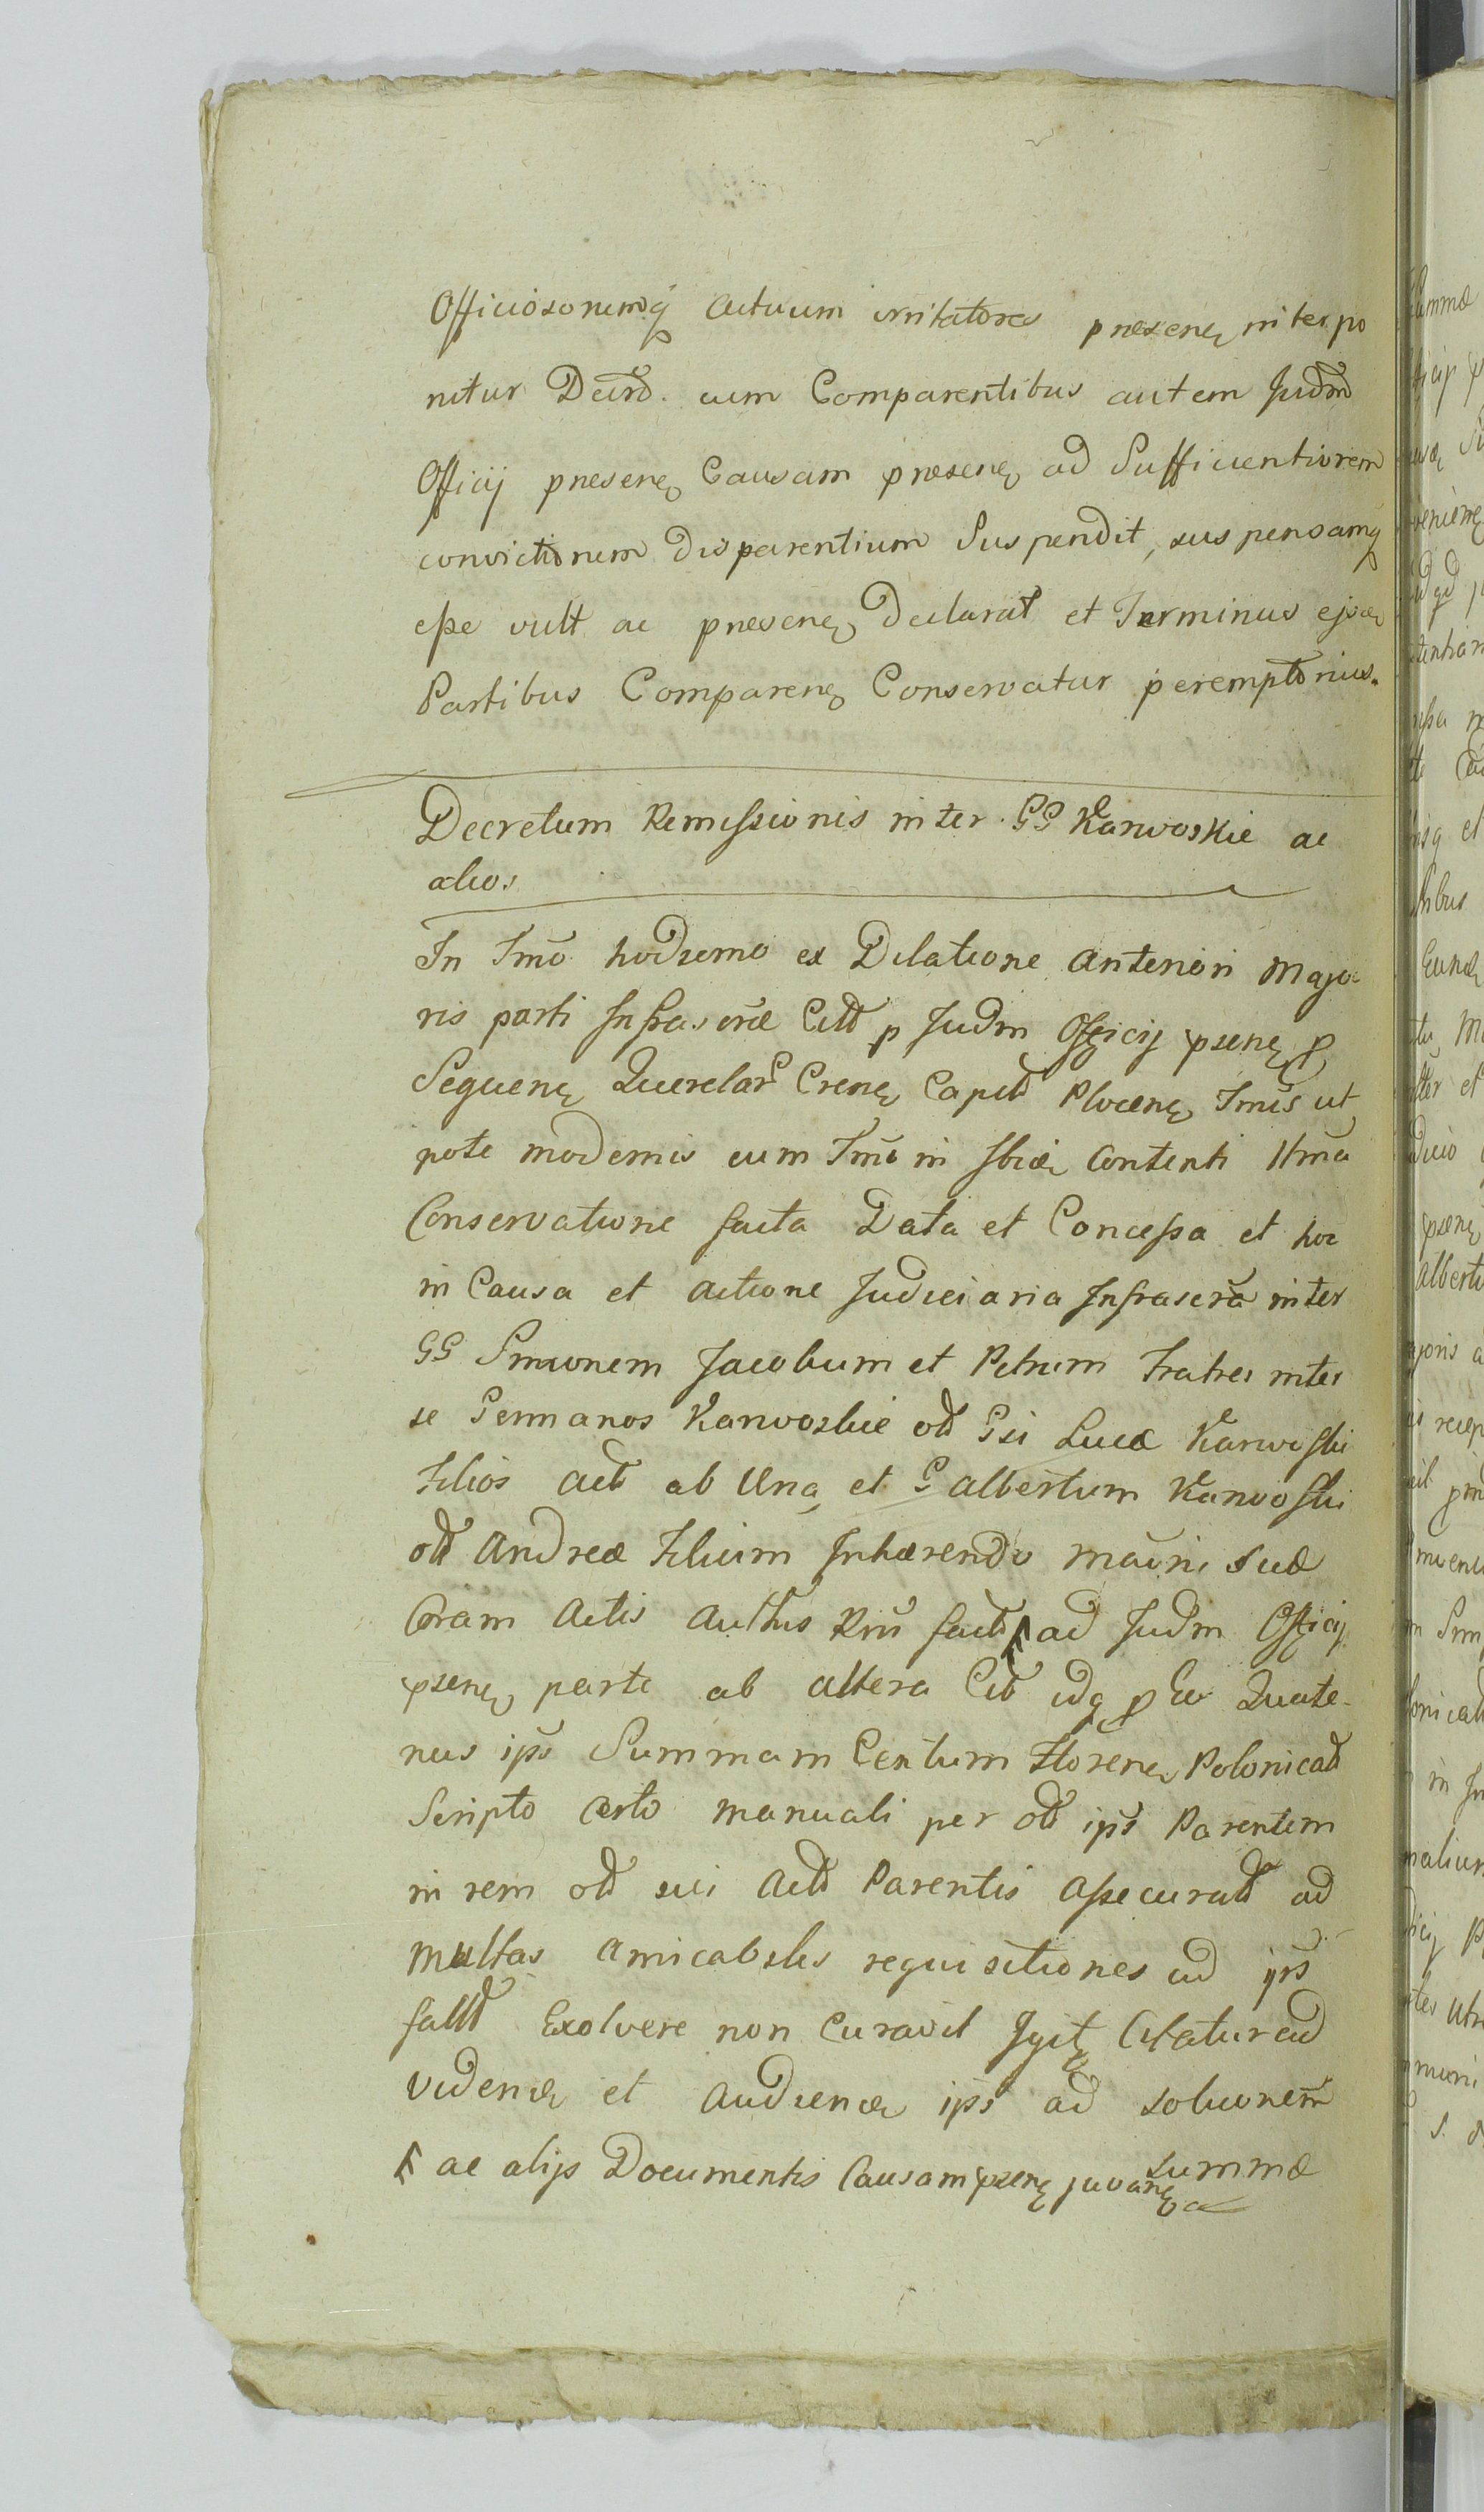 Officiosorumq actuum irritatores presenę interpo
nitur Decrd. cum Comparentibus autem Judm
Officij presenę Causam presenę ad Sufficientiorem
convictionem disparentium Suspendit, suspensamq
esse vult ac presenę Declarat et Terminus ejsdę
Partibus Comparenę Conservatur peremptorius.
Decretum Remissionis inter GG Karwoskie ac
alios
In Tmo hodierno ex Dilatione Anteriori Majo
ris parti Infrascrae Citt p Judm Officij psenę p
Sequenę Querelar Crenę Capitt Plocenę Tmis ut
pote modernis cum Tmo in Contenti
Conservatione facta Data et Concessa et hoc
in Causa et actione Judiciaria Infrascra inter
GG Simonem Jacobum et Petrum Fratres inter
se Germanos Karwoskie ott Gsi Lucæ Karwoski
Filios act ab Una, et G Albertum Karwoski
ott Andreæ Filium Inhærendo sue
Coram Actis Authis factt ad Judm Officij
psenę parte ab altera Citt idq p Eo Quate-
nus ips Summam Centum Florenę Polonicatt
Scripto certo manuali per ott ips Parentem
in rem ott sui Actt Parentis assecuratt ad
multas amicabiles requisitiones ad ips
factt Exolvere non Curavit Igit Citatur ad
videndę et Audiendę ips ad solucionem
summæ
ac alijs Documentis Causam psenę juvanę